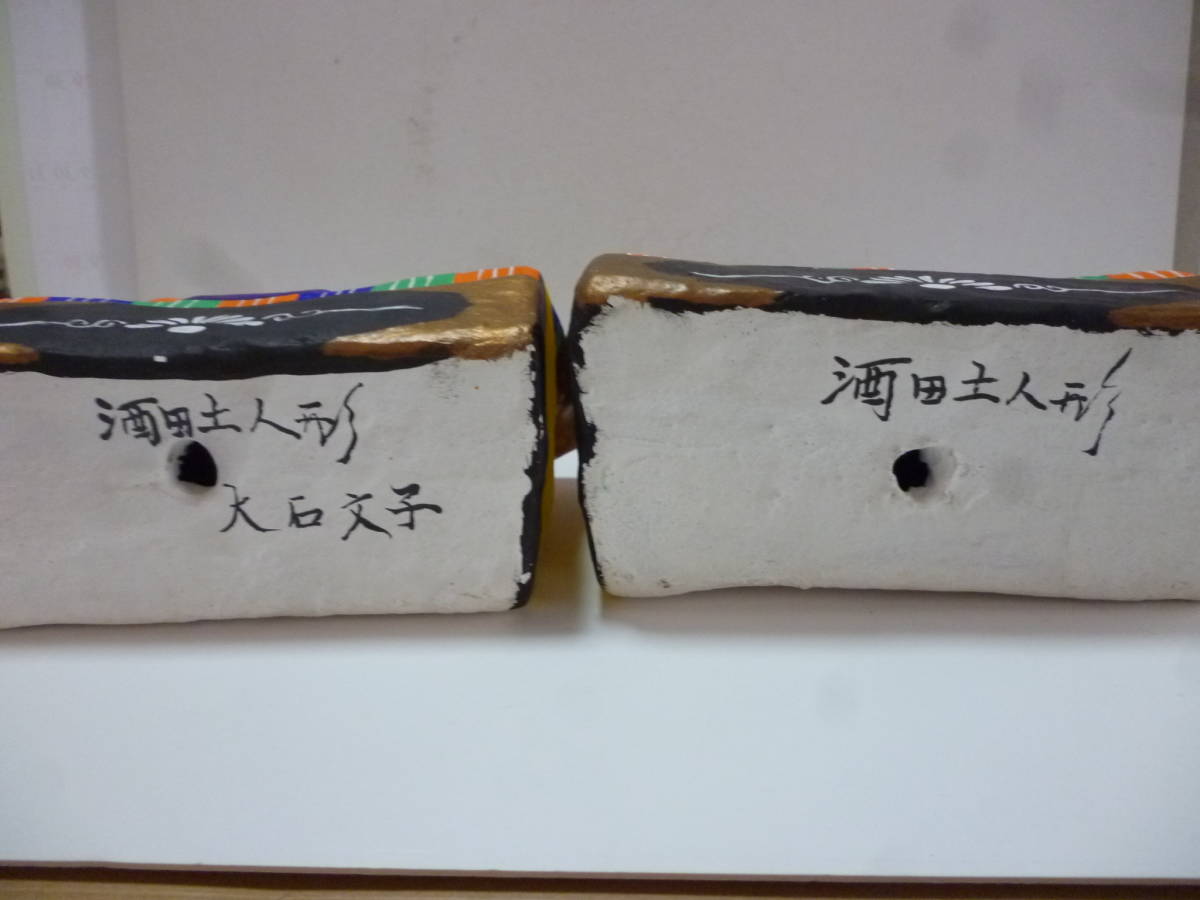 酒田土人形
大石文子
酒田土人形